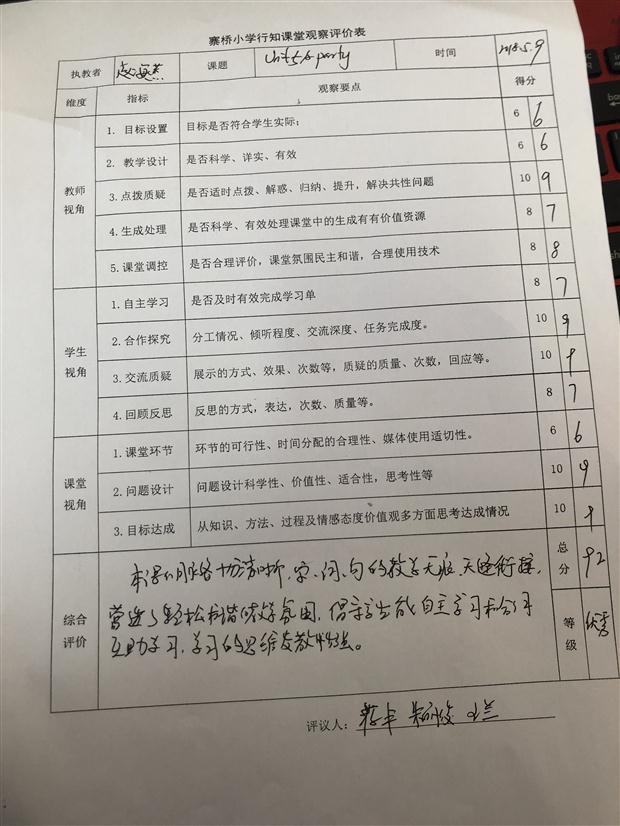 寨桥小学行知课堂观察评价表
执教者 课题 Unit5 A party 时间 2018.5.9
维度 指标 观察要点 得分
教师视角
1. 目标设置 目标是否符合学生实际； 6 6
2. 教学设计 是否科学、详实、有效 6 6
3.点拨质疑 是否适时点拨、解惑、归纳、提升，解决共性问题 10 9
4.生成处理 是否科学、有效处理课堂中的生成有有价值资源 8 7
5.课堂调控 是否合理评价，课堂氛围民主和谐，合理使用技术 8 8
学生视角
1.自主学习 是否及时有效完成学习单 8 7
2.合作探究 分工情况、倾听程度、交流深度、任务完成度。 10 9
3.交流质疑 展示的方式、效果、次数等，质疑的质量、次数，回应等。 10 9
4.回顾反思 反思的方式，表达，次数、质量等。 8 7
课堂视角
1.课堂环节 环节的可行性、时间分配的合理性、媒体使用适切性。 6 6
2.问题设计 问题设计科学性、价值性、适合性，思考性等 10 9
3.目标达成 从知识、方法、过程及情感态度价值观多方面思考达成情况 10 9
综合评价
本课 清晰，字、词、句的教学无痕，天缝衔接，
营造了轻松和谐 教学氛围，倡导学生 自主学习和合作
互助学习，学习的思维 特点。
总分 92
等级 优秀
评议人：